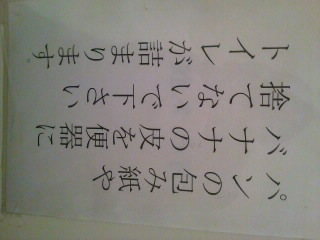 パンの包み紙や
バナナの皮を便器に
捨てないで下さい
トイレが詰まります